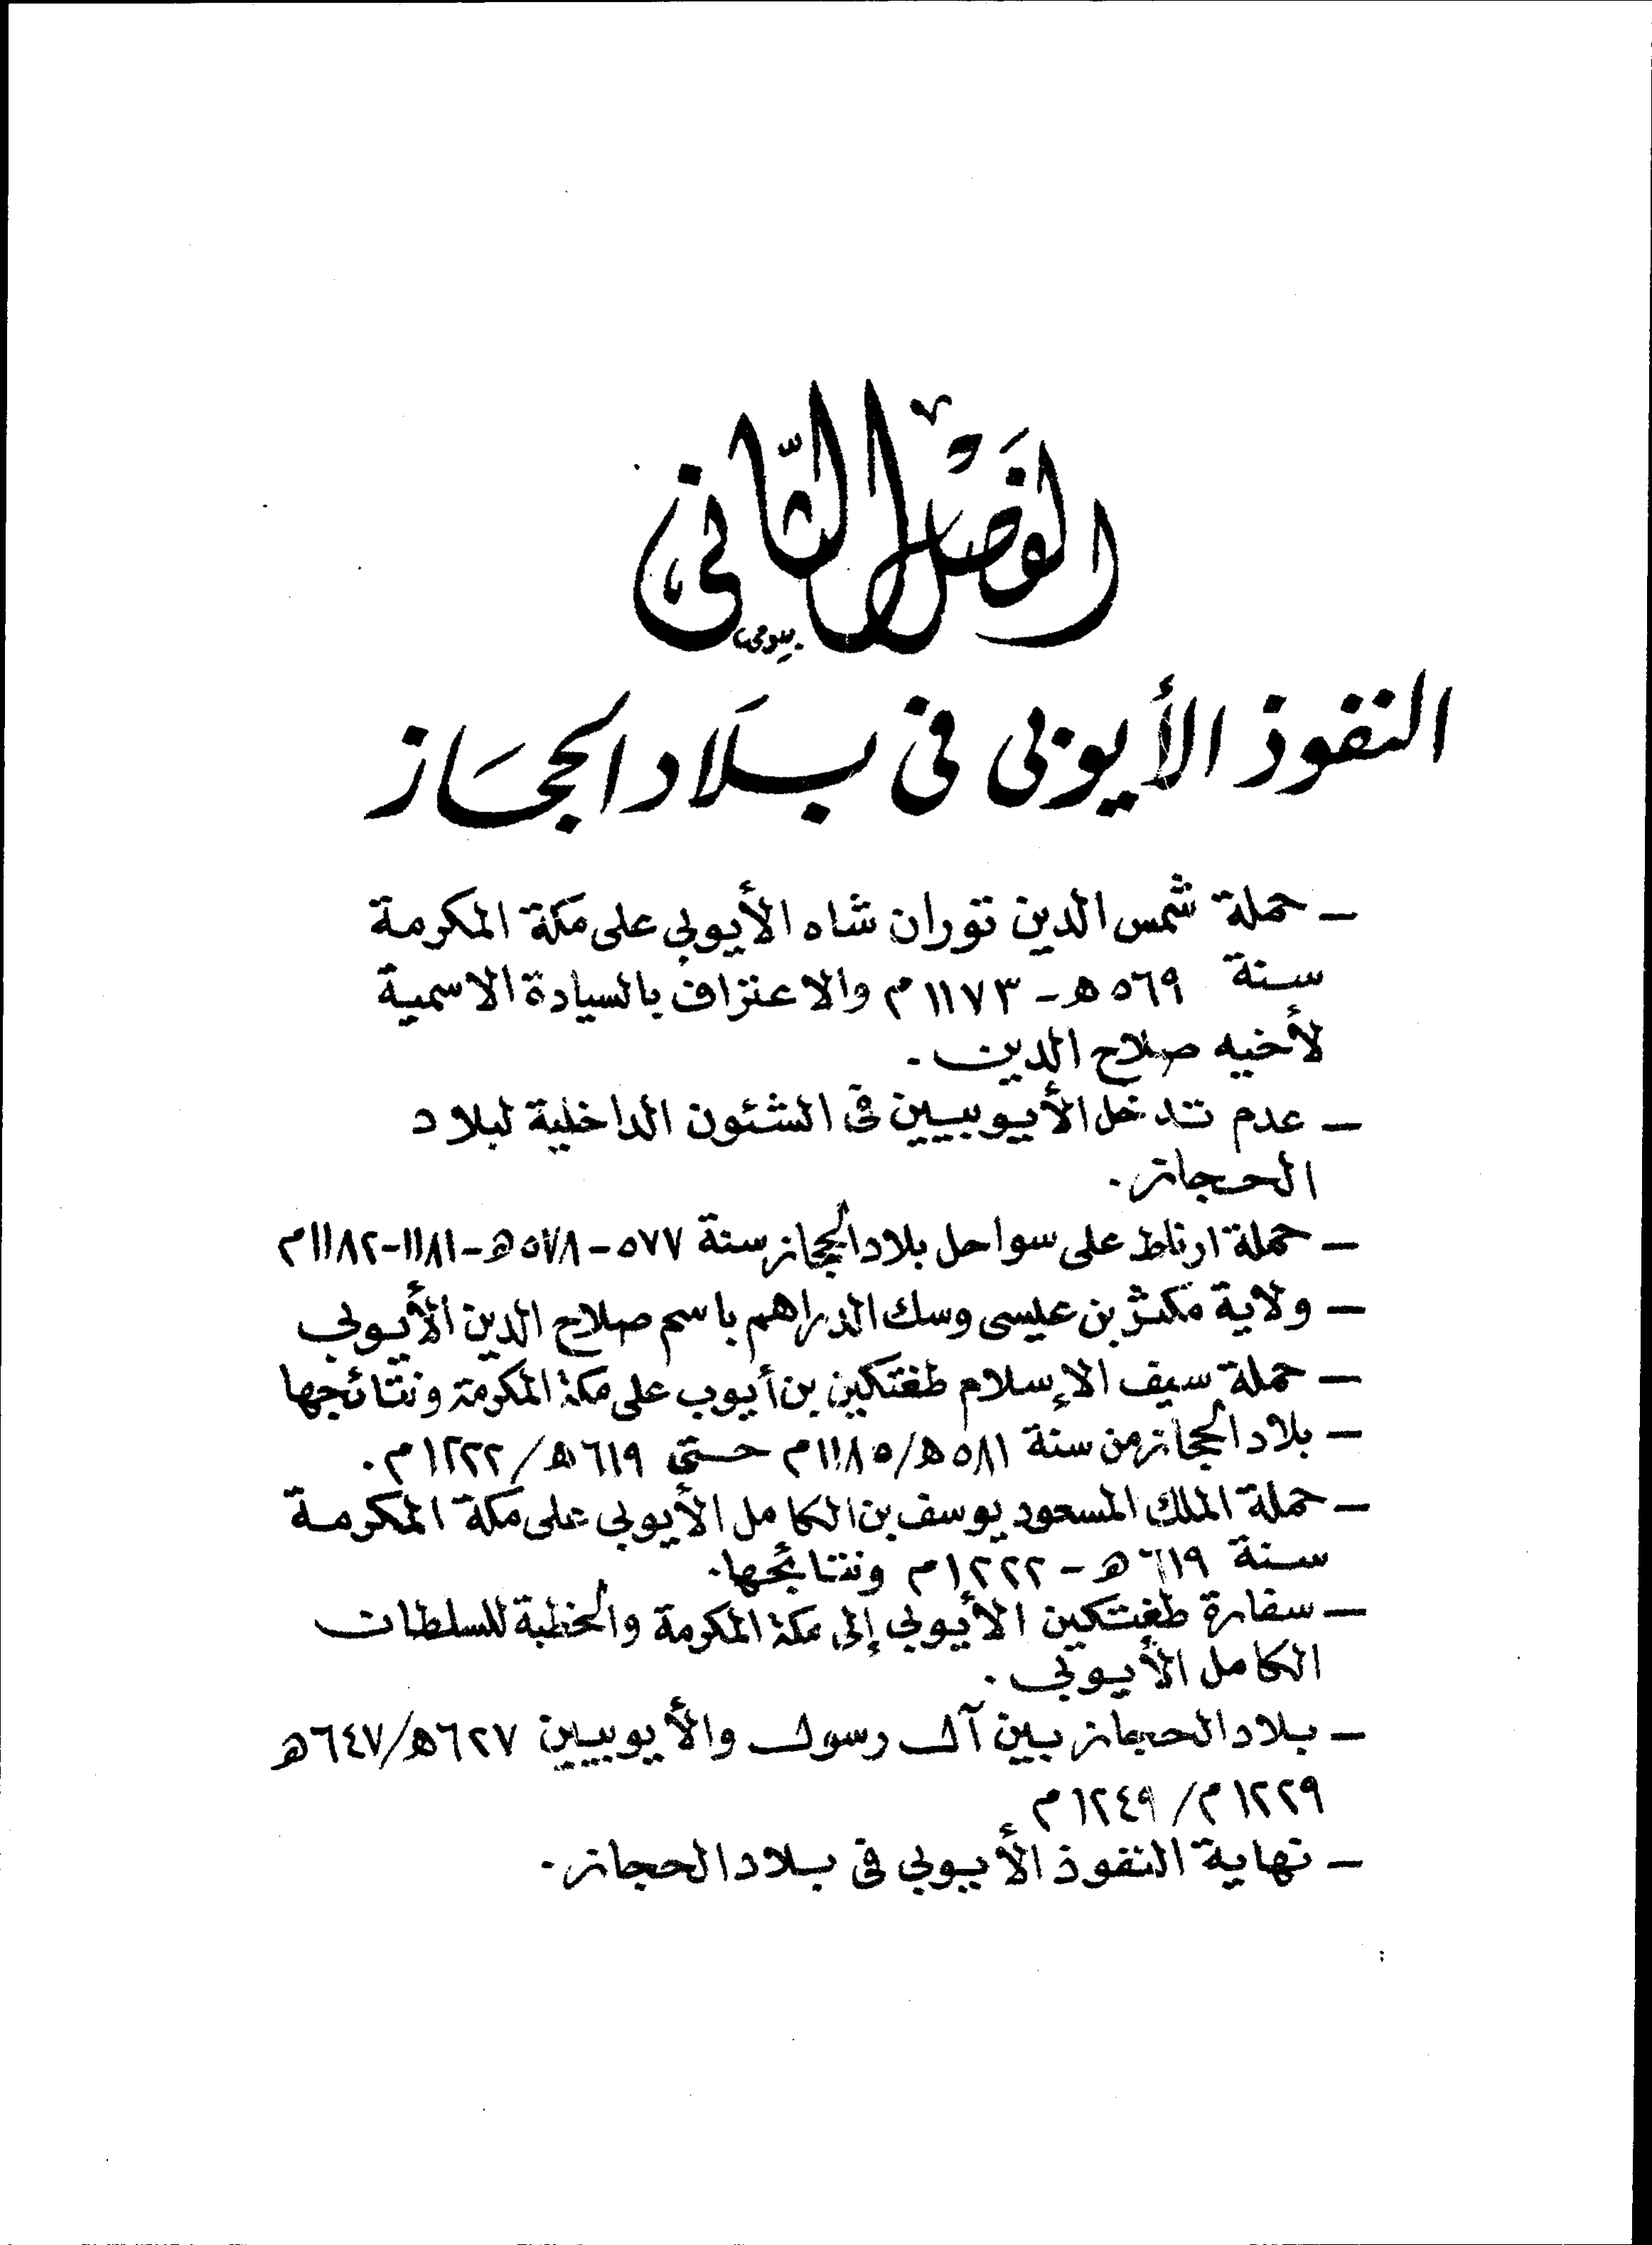 الفصل الثاني
بيومي
النفوذ الأيوبى فى بلاد الحجاز
– حملة شمس الدين توران شاه الأيوبي على مكة المكرمة
سنة ٥٦٩ هـ - ١١٧٣ م والاعتراف بالسيادة الاسمية
لأخيه صلاح الدين .
– عدم تدخل الأيوبيين فى الشئون الداخلية لبلاد
الحجاز .
– حملة ارناط على سواحل بلاد الحجاز سنة ٥٧٧ - ٥٧٨ هـ - ١١٨١-١١٨٢م
– ولاية مكثر بن عيسى وسك الدراهم باسم صلاح الدين الأيوبي
– حملة سيف الإسلام طغتكين بن أيوب على مكة المكرمة ونتائجها
– بلاد الحجاز من سنة ٥٨١هـ/١١٨٥م حتى ٦١٩هـ/١٢٢٢م .
– حملة الملك المسعود يوسف بن الكامل الأيوبي على مكة المكرمة
سنة ٦١٩ هـ - ١٢٢٢م ونتائجها.
– سفارة طغتكين الأيوبي إلى مكة المكرمة والخطبة للسلطان
الكامل الأيوبي .
– بلاد الحجاز بين آل رسول والأيوبيين ٦٢٧هـ/٦٤٧هـ
١٢٢٩م/١٢٤٩م
– نهاية النفوذ الأيوبي فى بلاد الحجاز .